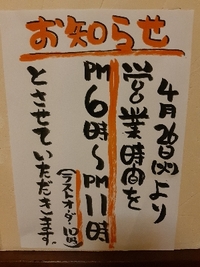 お知らせ
4月26日(火)より
営業時間を
PM6時~PM11時
(ラストオーダー10時)
とさせていただきます。